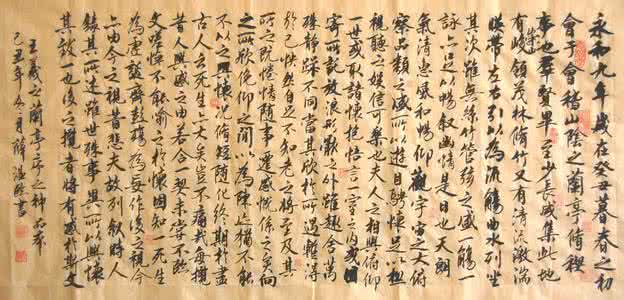 永和九年歲在癸丑暮春之初
會于會稽山陰之蘭亭脩禊
事也群賢畢至少長咸集此地
有崇山峻領茂林脩竹又有清流激湍
暎帶左右引以為流觴曲水列坐
其次雖無絲竹管絃之盛一觴一
詠亦足以暢敘幽情是日也天朗
氣清惠風和暢仰觀宇宙之大俯
察品類之盛所以遊目騁懷足以極
視聽之娛信可樂也夫人之相與俯仰
一世或取諸懷抱悟言一室之內或因
寄所託放浪形骸之外雖趣舍萬
殊靜躁不同當其欣於所遇暫得
於己快然自足不知老之將至及其
所之既惓情隨事遷感慨係之矣向
之所欣俛仰之間以為陳迹猶不能
不以之興懷況脩短隨化終期於盡
古人云死生亦大矣豈不痛哉每攬
昔人興感之由若合一契未嘗不臨
文嗟悼不能喻之於懷固知一死生
為虛誕齊彭殤為妄作後之視今
亦由今之視昔悲夫故列敘時人
錄其所述雖世殊事異所以興懷
其致一也後之攬者亦將有感於斯文
王羲之蘭亭序之神品
己丑年冬月薛書